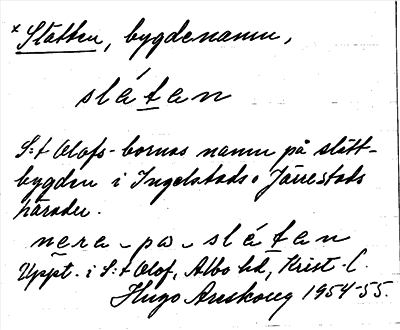 * Slätten, bygdenamn,
slátan
S:t Olofs-bornas namn på slätt-
bygden i Ingelstads o Järrestads
härader.
nera-po-slátan
Uppt. i S:t Olof, Albo hd, Krist-l.
Hugo Areskoug 1954-55.